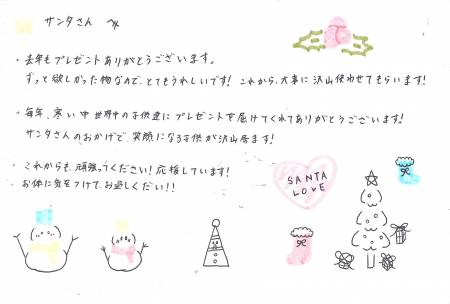 サンタさん へ
・去年もプレゼントありがとうございます。
ずっと欲しかった物なので、とてもうれしいです! これから、大事に沢山使わせてもらいます!
・毎年、寒い中世界中の子供達にプレゼントを届けてくれてありがとうございます!
サンタさんのおかげで、笑顔になる子供が沢山居ます!
・これからも、頑張ってください! 応援しています!
・お体に気をつけて、お過しください!!
SANTA
LOVE